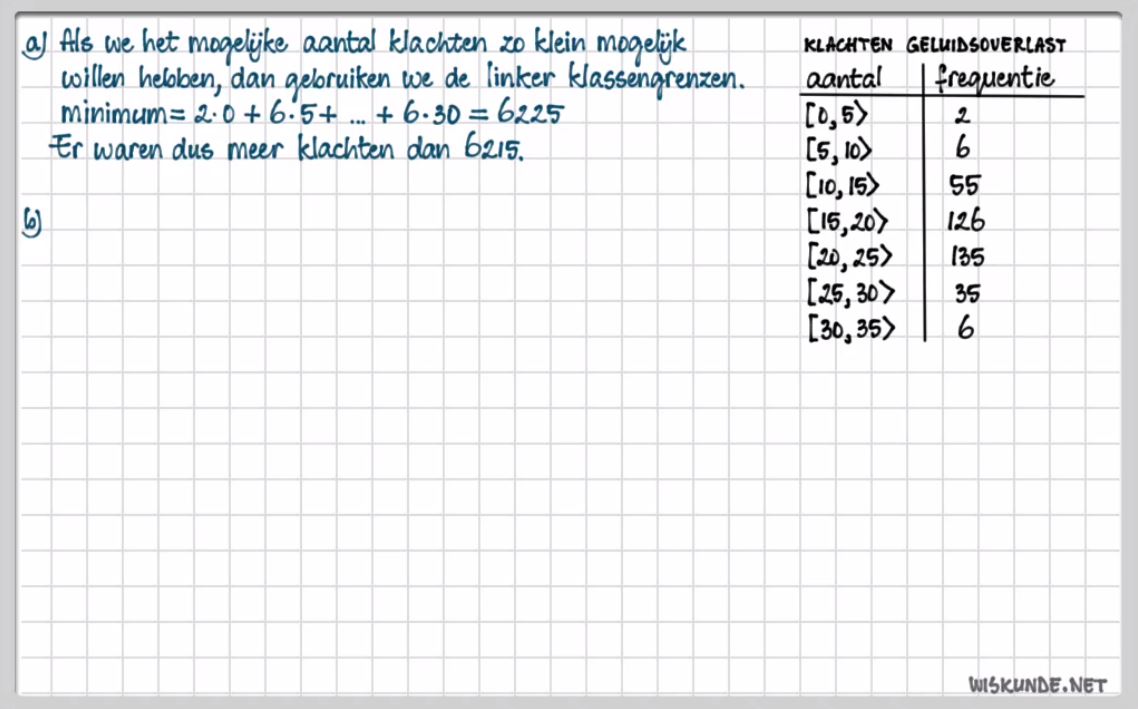 a) Als we het mogelijke aantal klachten zo klein mogelijk
willen hebben, dan gebruiken we de linker klassengrenzen.
minimum = 2·0 + 6·5 + ... + 6·30 = 6225
Er waren dus meer klachten dan 6215.
b)
KLACHTEN GELUIDSOVERLAST
aantal frequentie
[0, 5⟩ 2
[5, 10⟩ 6
[10, 15⟩ 55
[15, 20⟩ 126
[20, 25⟩ 135
[25, 30⟩ 35
[30, 35⟩ 6
WISKUNDE.NET